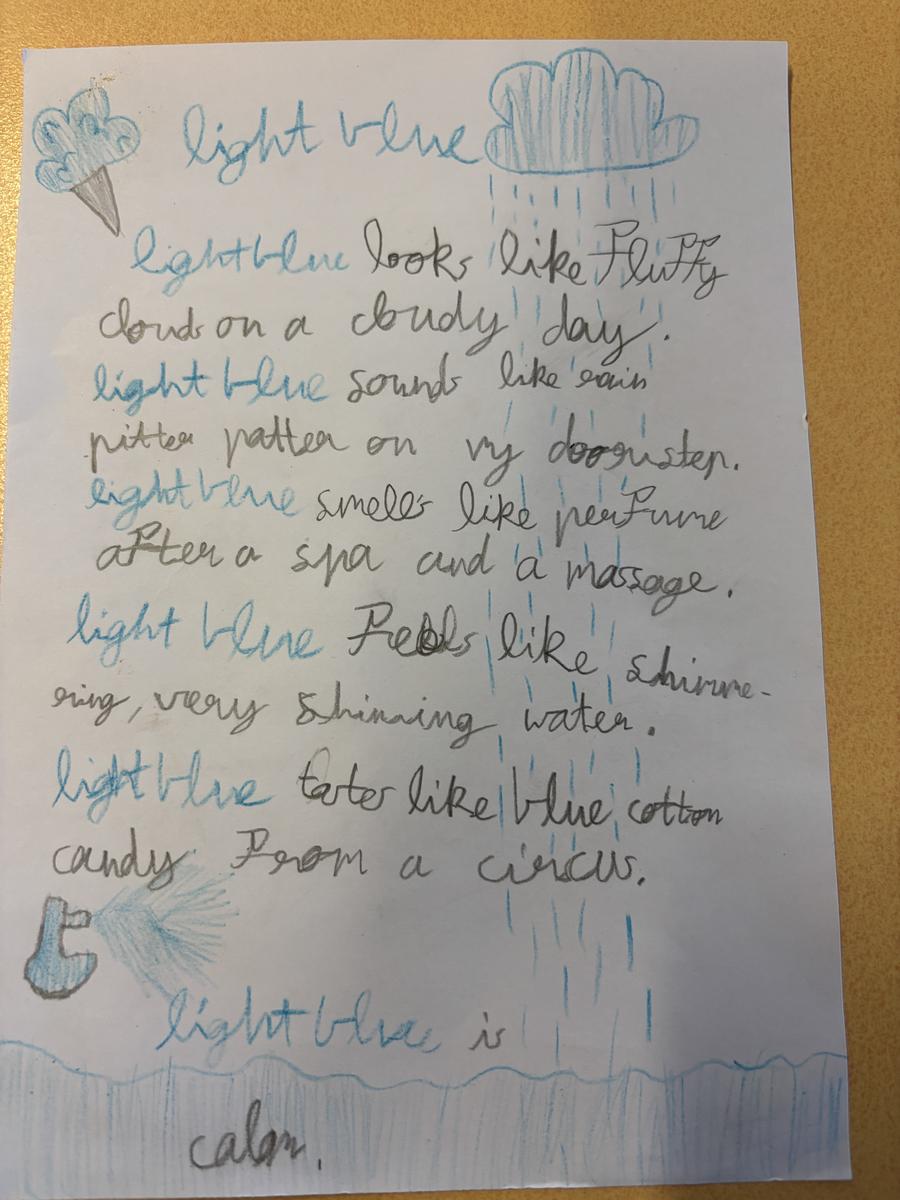 light blue
light blue looks like Fluffy
clouds on a cloudy day.
light blue sounds like rain
pitter patter on my doorustep.
light blue smells like perfume
after a spa and a massage.
light blue Feels like shimme-
ring, very shinning water.
light blue tastes like blue cotton
candy From a circus.
light blue is
calm.